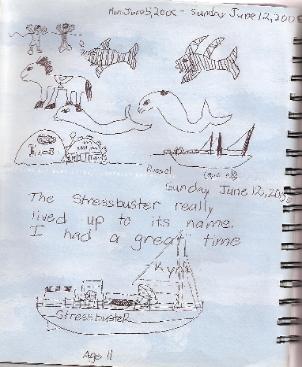 Sunday June 12, 2005
Russel
Sunday June 12, 2005
The stressbuster really
lived up to its name.
I had a great time
Kyra
Stressbuster
Age 11